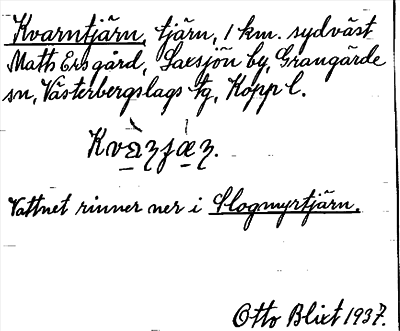 Kvarntjärn, tjärn, 1 km. sydväst
Matts Ersgård, Saxsjön by, Grangärde
sn, Västerbergslags tg, Kopp l.
Vattnet rinner ner i Slogmyrtjärn.
Otto Blixt 1937.